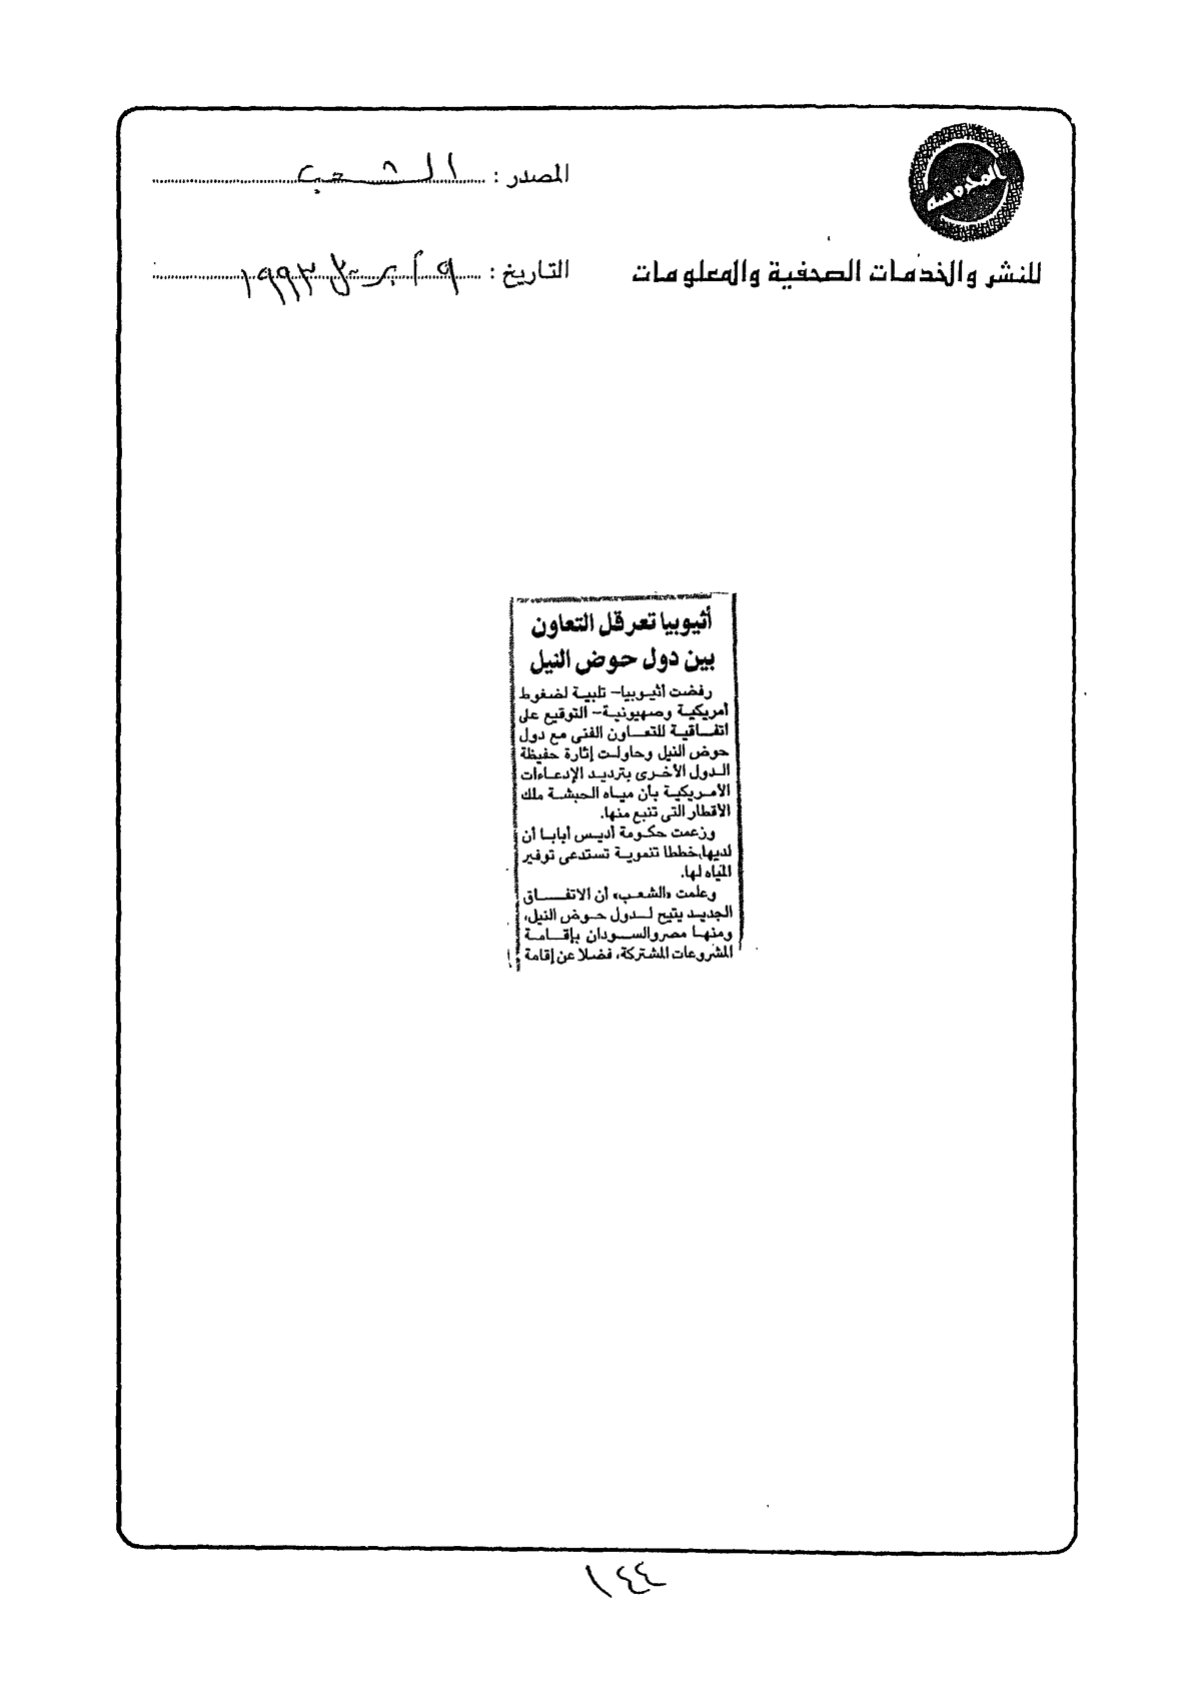 المحروسة
المصدر : الشعب
للنشر والخدمات الصحفية والمعلومات
التاريخ : ٩ أبريل ١٩٩٣
أثيوبيا تعرقل التعاون
بين دول حوض النيل
رفضت أثيوبيا- تلبية لضغوط
أمريكية وصهيونية- التوقيع على
اتفاقية للتعاون الفنى مع دول
حوض النيل وحاولت إثارة حفيظة
الدول الأخرى بترديد الإدعاءات
الأمريكية بأن مياه الحبشة ملك
الأقطار التى تنبع منها.
وزعمت حكومة أديس أبابا أن
لديها خططا تنموية تستدعى توفير
المياه لها.
وعلمت «الشعب» أن الاتفاق
الجديد يتيح لدول حوض النيل،
ومنها مصر والسودان بإقامة
المشروعات المشتركة، فضلا عن إقامة
١٤٤